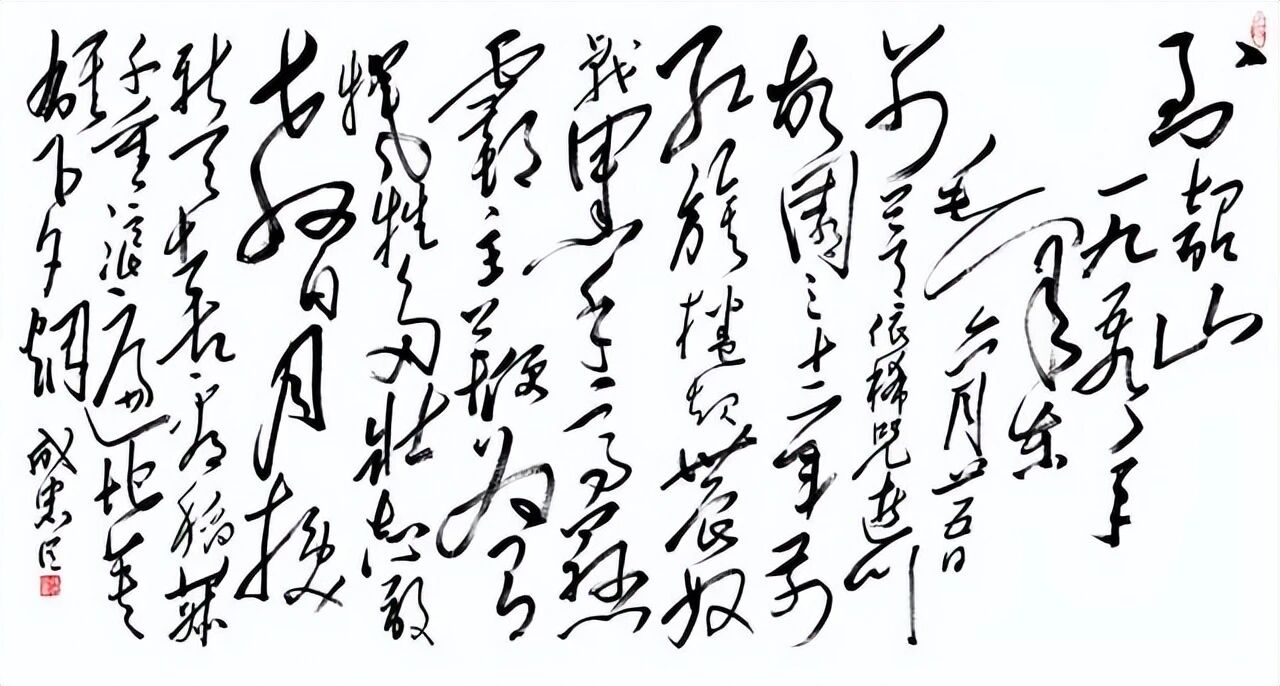 到韶山
一九五九年
毛泽东
六月廿五日
别梦依稀咒逝川
故園三十二年前
红旗捲起農奴
戟黑手高悬
霸主鞭为有
犠牲多壮志敢
教日月换
新天喜看稻菽
千重浪遍地英
雄下夕烟
成忠